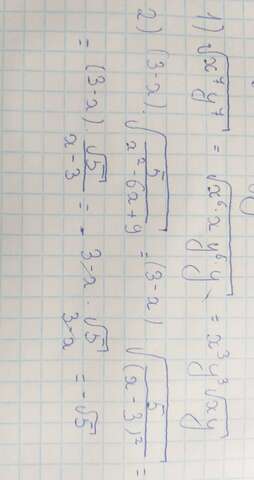 1) √(x⁷y⁷) = √(x⁶·x y⁶·y) = x³y³√(xy)
2) (3-x)·√(5/(x²-6x+9)) = (3-x)√(5/(x-3)²) =
= (3-x)·√5/(x-3) = - 3-x·√5/(3-x) = -√5